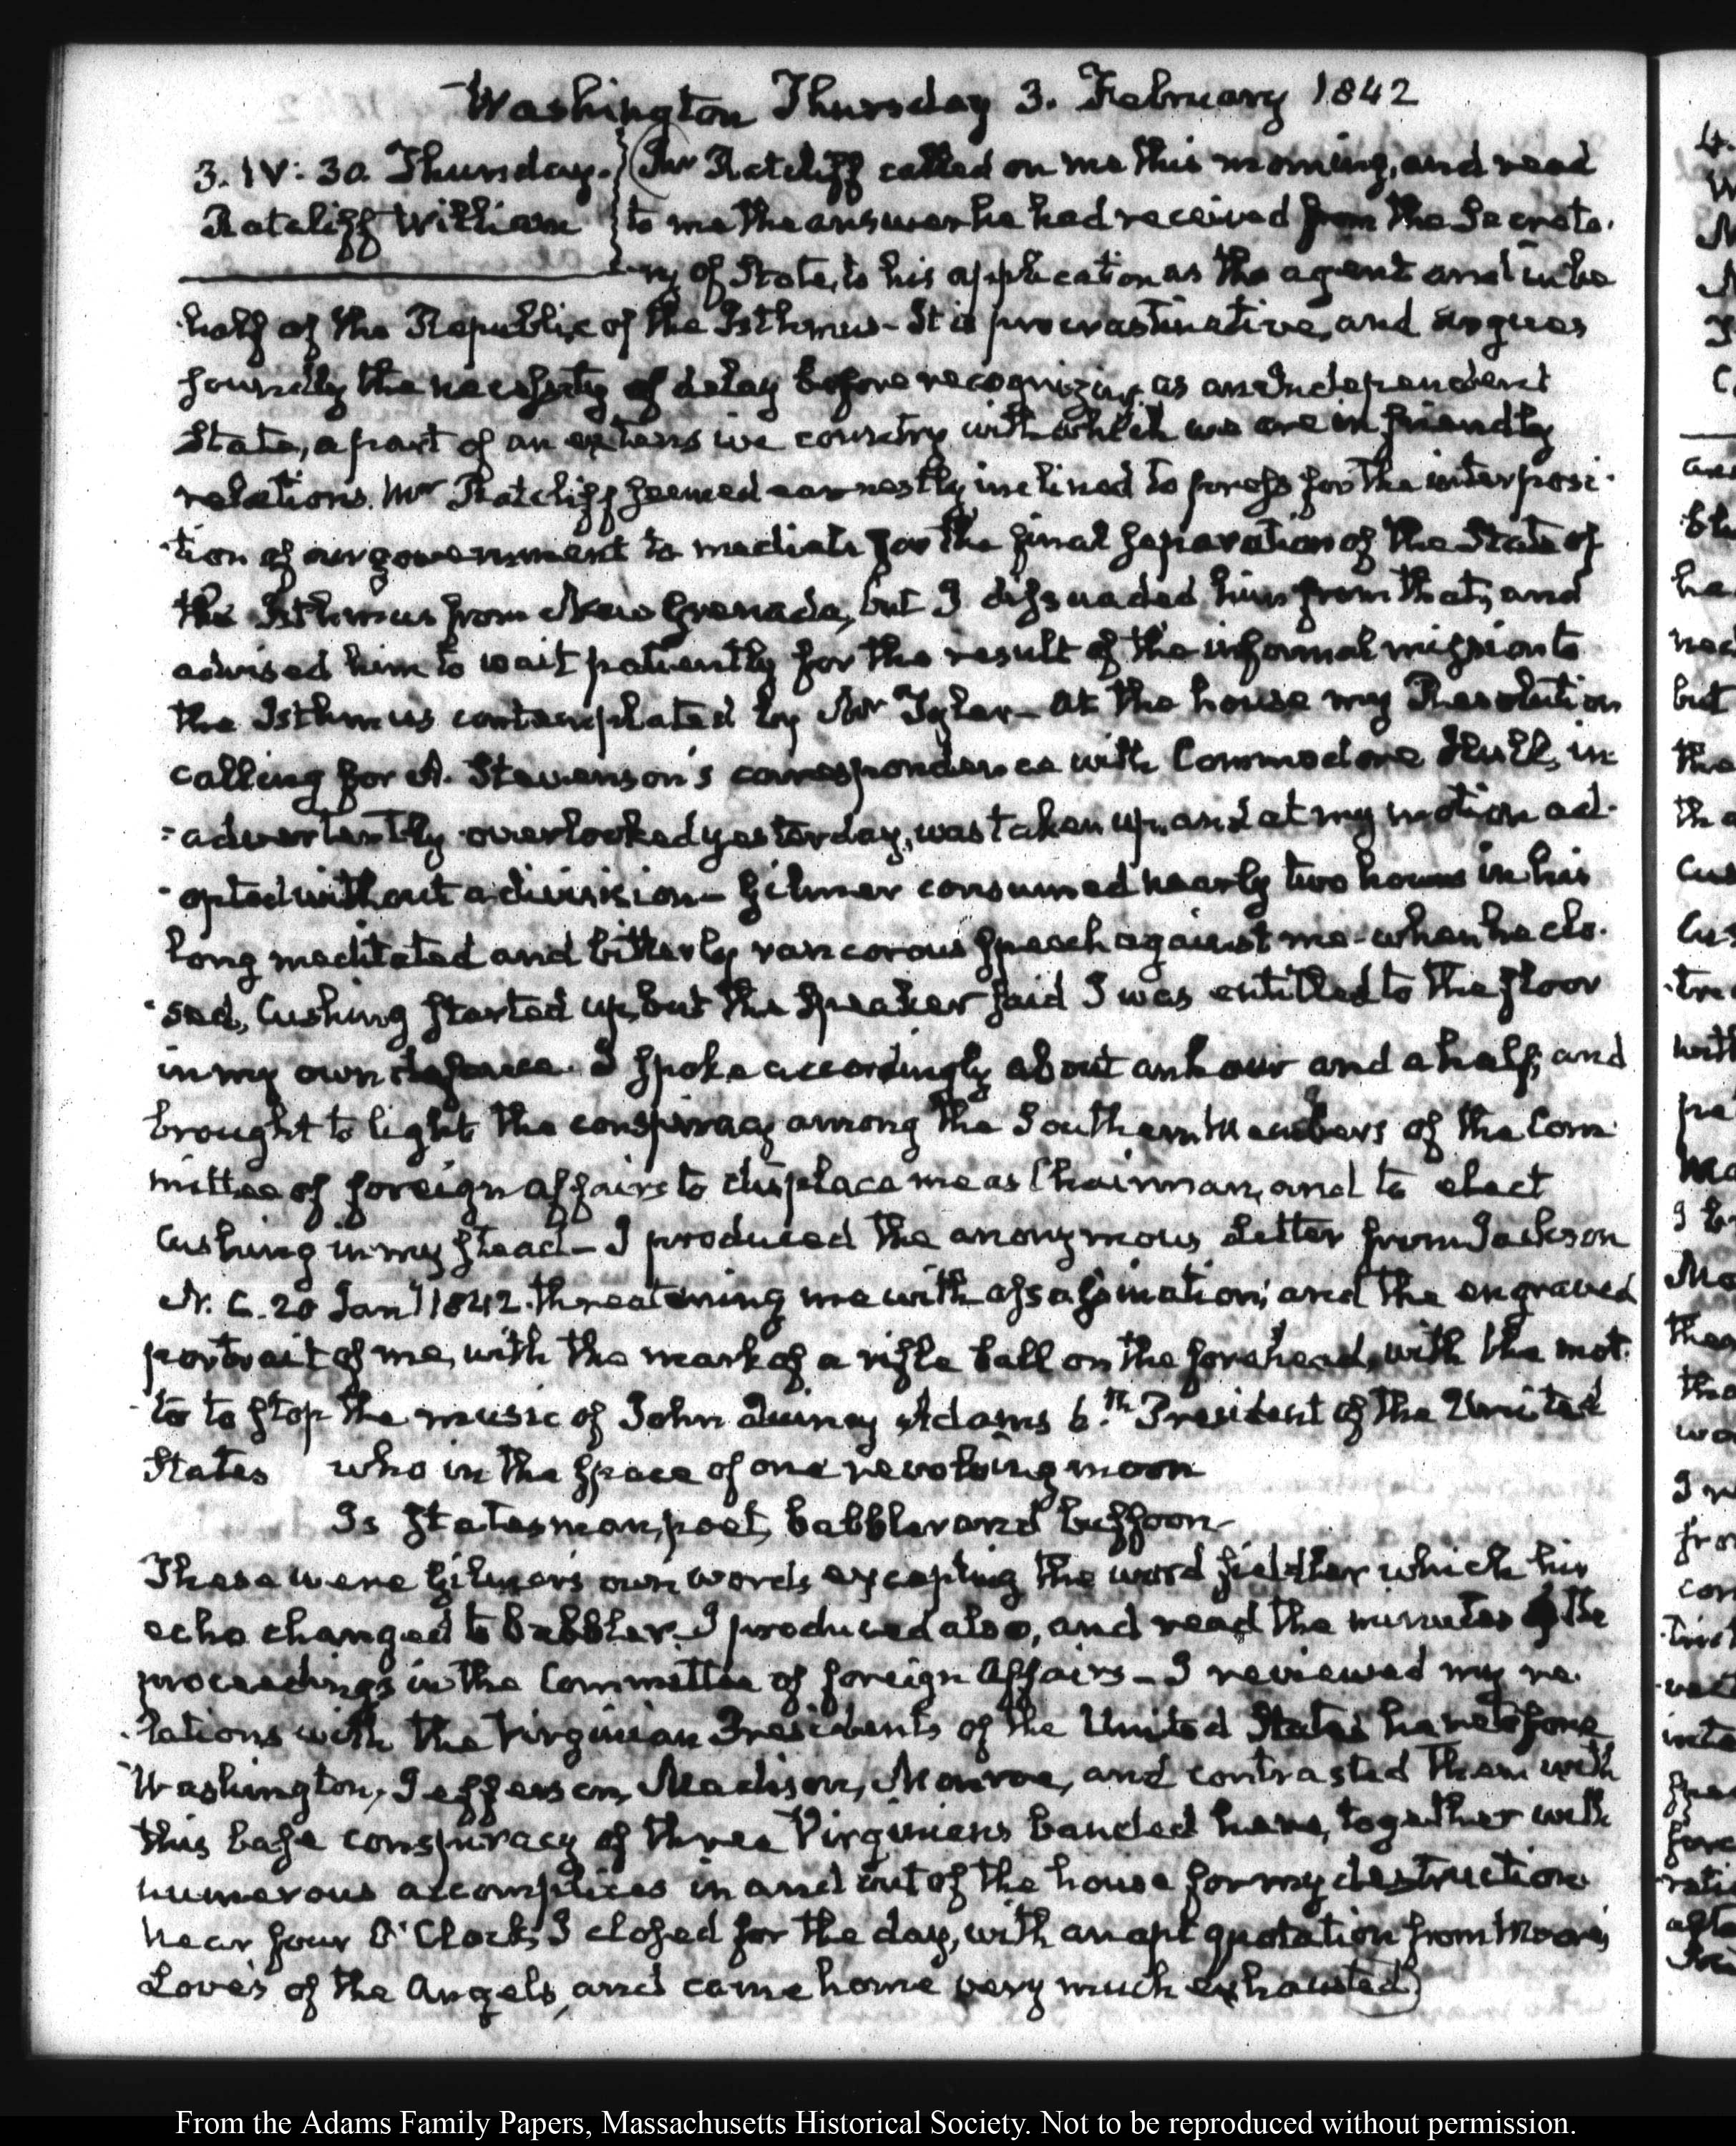 Washington Thursday 3. February 1842
3. IV: 30 Thursday.
Ratcliff William
Mr Ratcliff called on me this morning, and read
to me the answer he had received from the Secreta-
-ry of State, to his application as the agent and in be
half of the Republic of the Isthmus - It is procrastinative, and argues
soundly the necessity of delay before recognizing, as an Independent
State, a part of an extensive country with which we are in friendly
relations. Mr Ratcliff seemed earnestly inclined to press for the interposi-
-tion of our government to mediate for the final separation of the State of
the Isthmus from New Grenada, but I dissuaded him from that, and
advised him to wait patiently for the result of the informal mission to
the Isthmus contemplated by Mr Tyler - At the house my Resolution
calling for A. Stevenson's correspondence with Commodore Hull, in-
-advertently overlooked yesterday, was taken up, and at my motion ad-
-opted without a division - Gilmer consumed nearly two hours in his
long meditated and bitterly rancorous speech against me - when he clo-
-sed, Cushing started up, but the Speaker said I was entitled to the floor
in my own defence. I spoke accordingly about an hour and a half, and
brought to light the conspiracy among the Southern Members of the Com-
mittee of foreign affairs to displace me as Chairman, and to elect
Cushing in my stead - I produced the anonymous Letter from Jackson
N. C. 20 Jany 1842. threatening me with assassination; and the engraved
portrait of me, with the mark of a rifle ball on the forehead, with the mot-
-to to stop the music of John Quincy Adams 6.th President of the United
States who in the space of one revolving moon
Is statesman, poet, babbler and buffoon -
These were Gilmer's own words excepting the word fiddler which his
echo changed to babbler. I produced also, and read the minutes of the
proceedings in the Committee of foreign Affairs - I reviewed my re-
-lations with the Virginian Presidents of the United States heretofore
Washington, Jefferson, Madison, Monroe, and contrasted them with
this base conspiracy of three Virginians banded here, together with
numerous accomplices in and out of the house for my destruction.
Near four O'Clock, I closed for the day, with an apt quotation from Moore's
Loves of the Angels, and came home very much exhausted
From the Adams Family Papers, Massachusetts Historical Society. Not to be reproduced without permission.